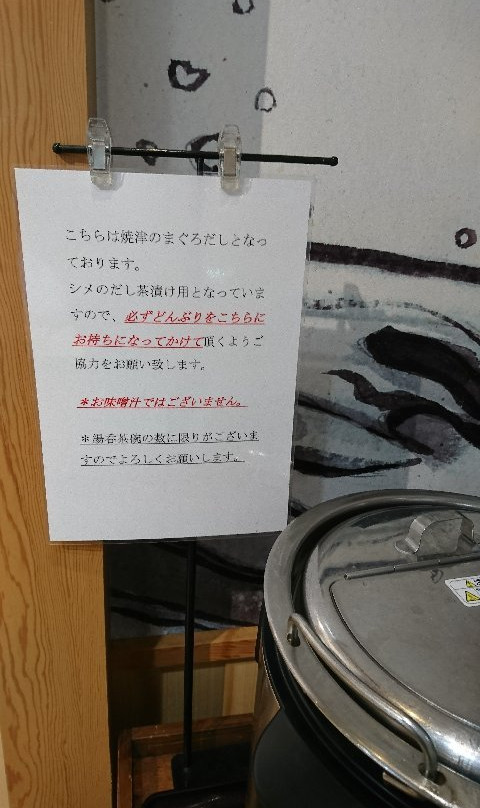 こちらは焼津のまぐろだしとなっ
ております。
シメのだし茶漬け用となっていま
すので、必ずどんぶりをこちらに
お持ちになってかけて頂くようご
協力をお願い致します。
＊お味噌汁ではございません。
＊湯呑茶碗の数に限りがございま
すのでよろしくお願いします。